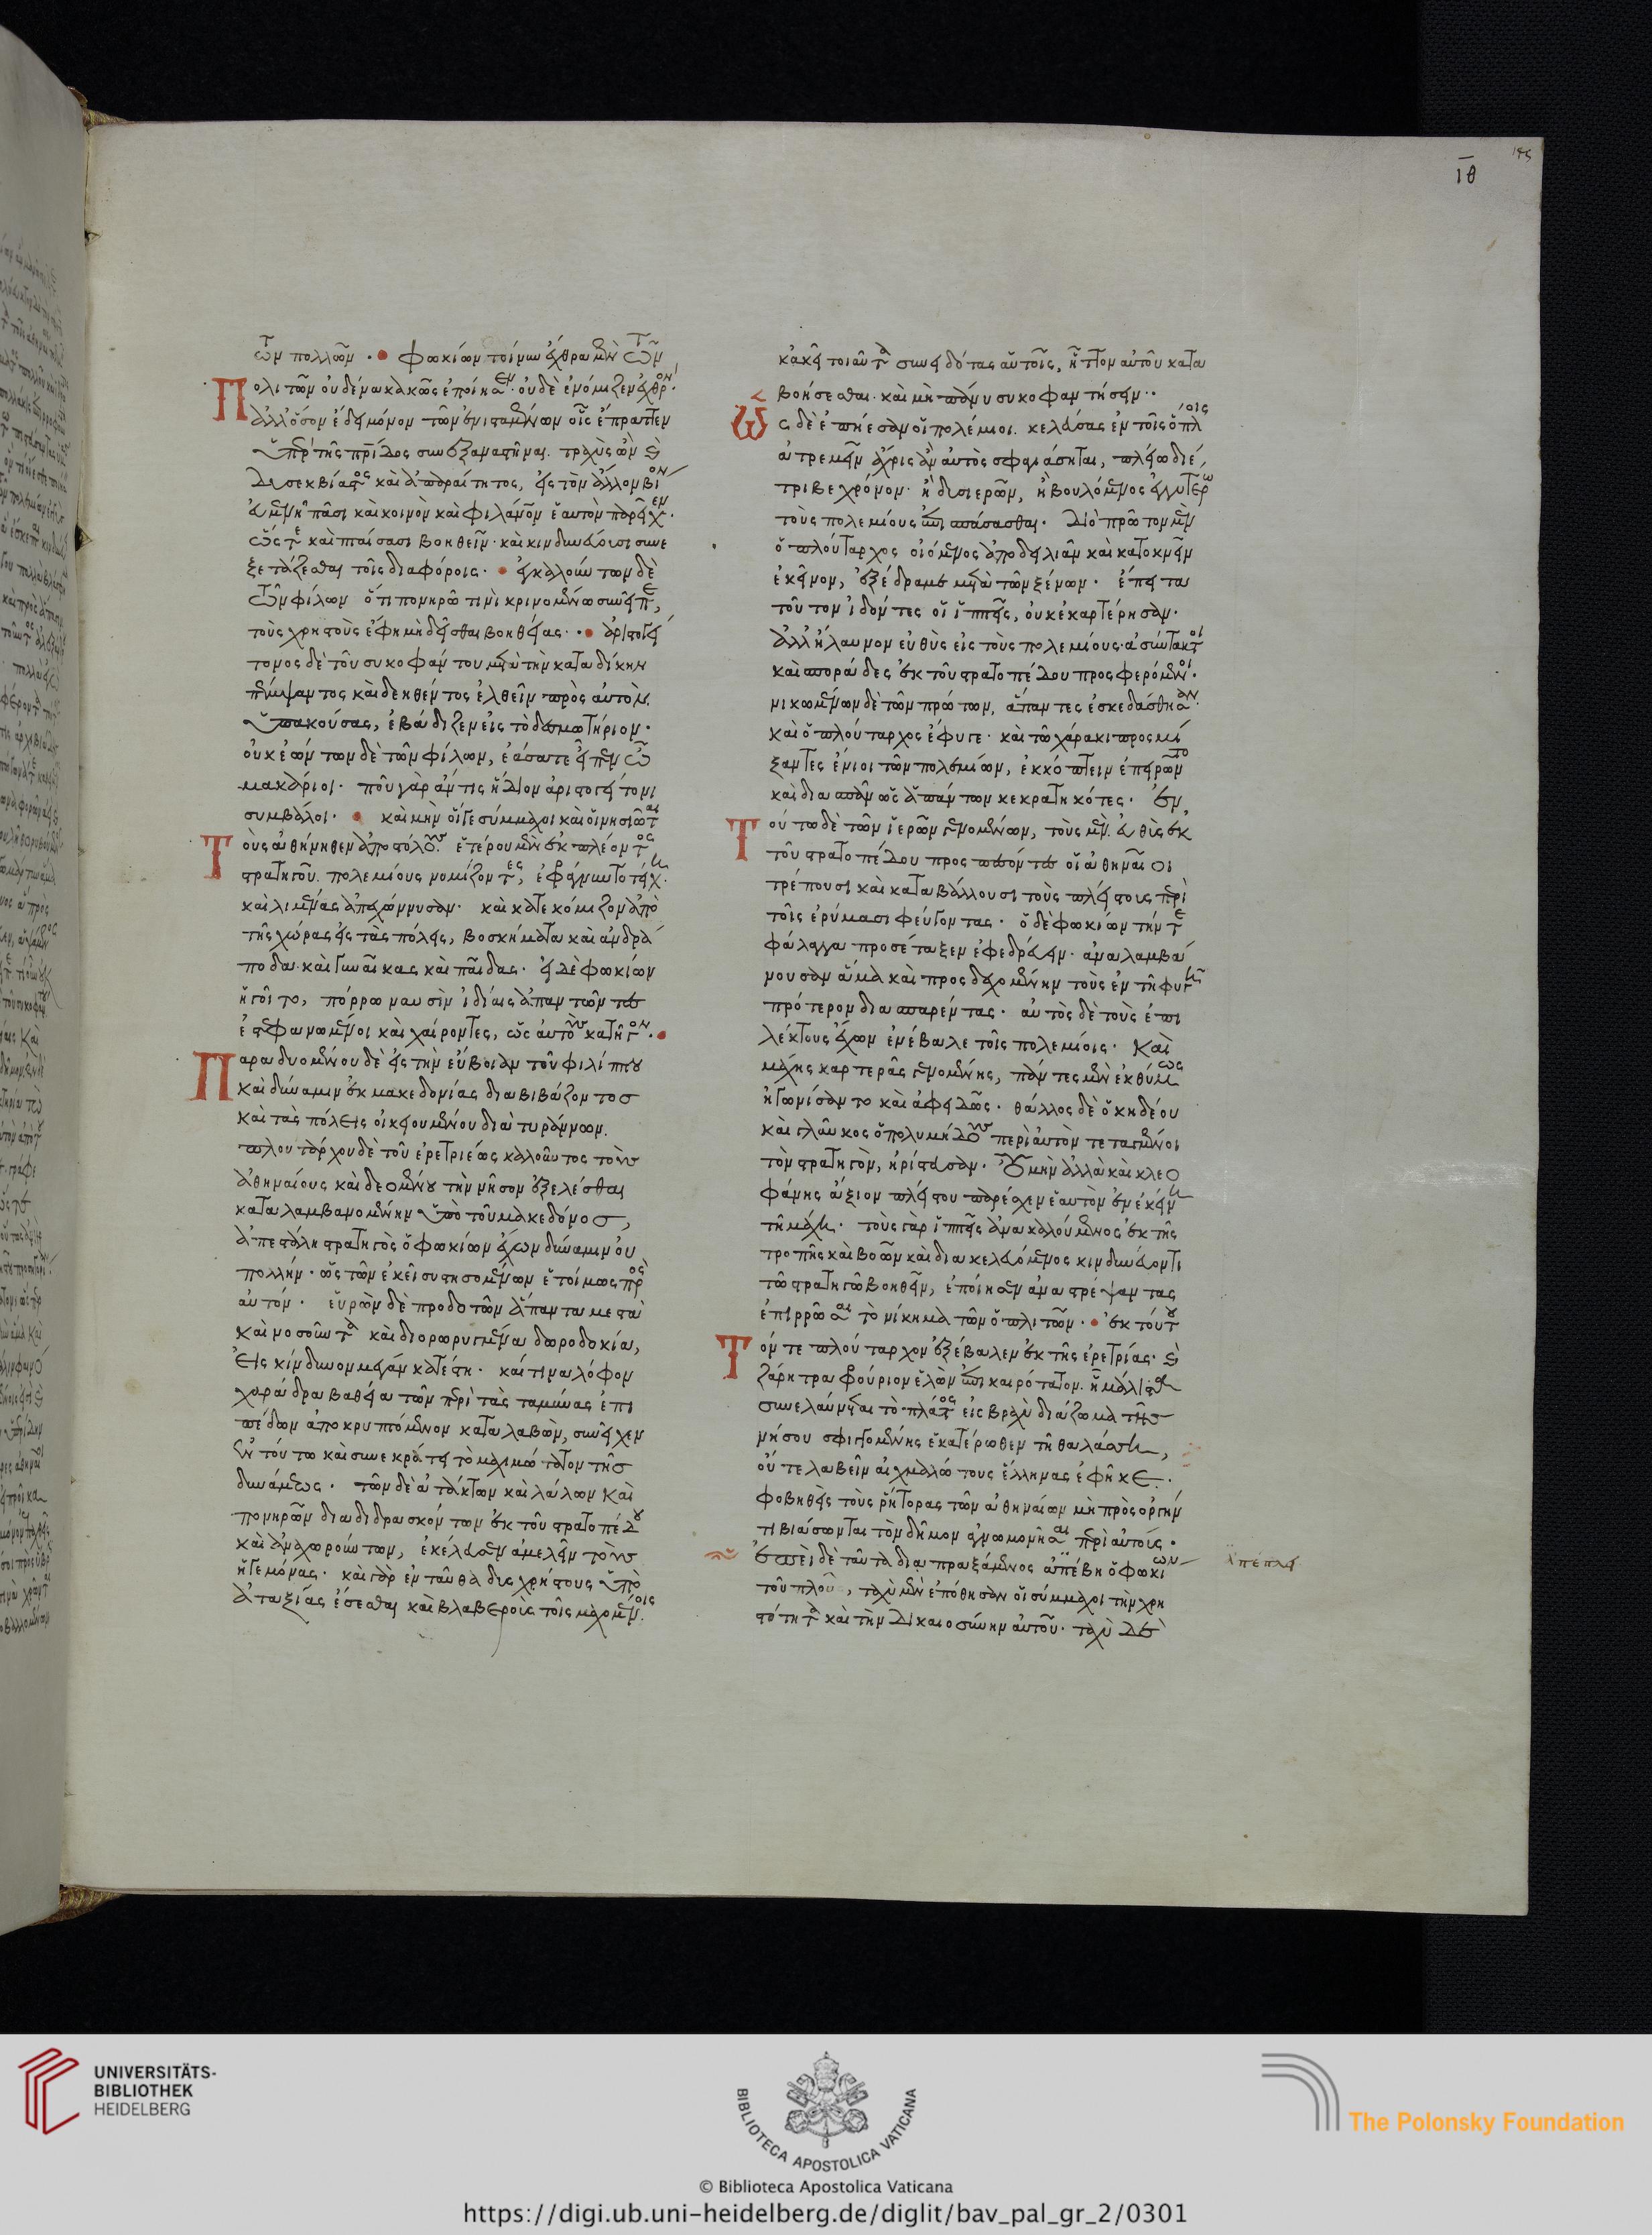 τῶν πολλῶν · Φωκίων τοίνυν ἔχθρα μὲν τῶν
Πολιτῶν οὐδένα κακῶς ἐποίησεν· οὐδὲ ἐνόμιζεν ἐχθρόν·
ἀλλ' ὅσον ἔδει μόνον τῶν ἐνισταμένων οἷς ἔπραττεν
ὑπὲρ τῆς πατρίδος συνεξαναστῆναι. τραχὺς ὢν καὶ
δυσεκβίαστος καὶ ἀπαραίτητος, εἰς τὸν ἄλλον βίον
εὐμενῆ πᾶσι καὶ κοινὸν καὶ φιλάνθρωπον ἑαυτὸν παρεῖχεν·
ὥστε καὶ πταίσασι βοηθεῖν· καὶ κινδυνεύουσι συνε
ξετάζεσθαι τοῖς διαφόροις · ἐγκαλούντων δὲ
τῶν φίλων ὅτι πονηρῷ τινὶ κρινομένω συνεῖπε,
τοὺς χρηστοὺς ἔφη μὴ δεῖσθαι βοηθείας · ἀριστογεί
τονος δὲ τοῦ συκοφάντου μετὰ τὴν καταδίκην
πέμψαντος καὶ δεηθέντος ἐλθεῖν πρὸς αὐτὸν.
ὑπακούσας, ἐβάδιζεν εἰς τὸ δεσμωτήριον·
οὐκ ἐώντων δὲ τῶν φίλων, ἐάσατε εἶπεν ὦ
μακάριοι· ποῦ γὰρ ἄν τις ἥδιον ἀριστογείτονι
συμβάλοι · καὶ μὴν οἵ γε σύμμαχοι καὶ οἱ νησιῶται
Τοὺς ἀθήνηθεν ἀποστόλους ἑτέρου μὲν ἐκπλέοντος
στρατηγοῦ. πολεμίους νομίζοντες, ἐφράγνυντο τείχη·
καὶ λιμένας ἀπεχώννυσαν· καὶ κατεκόμιζον ἀπὸ
τῆς χώρας εἰς τὰς πόλεις, βοσκήματα καὶ ἀνδρά
ποδα· καὶ γυναῖκας καὶ παῖδας· εἰ δὲ φωκίων
ἡγοῖτο, πόρρω ναυσὶν ἰδίαις ἀπαντῶντες
ἐστεφανωμένοι καὶ χαίροντες, ὡς αὐτοὺς κατῆγον·
Παραδυομένου δὲ εἰς τὴν εὔβοιαν τοῦ φιλίππου
καὶ δύναμιν ἐκ μακεδονίας διαβιβάζοντος
καὶ τὰς πόλεις οἰκειουμένου διὰ τυράννων.
πλουτάρχου δὲ τοῦ ἐρετριέως καλοῦντος τοὺς
ἀθηναίους καὶ δεομένου τὴν νῆσον ἐξελέσθαι
καταλαμβανομένην ὑπὸ τοῦ μακεδόνος,
ἀπεστάλη στρατηγὸς ὁ φωκίων ἔχων δύναμιν οὐ
πολλήν· ὡς τῶν ἐκεῖ συστησομένων ἑτοίμως πρὸς
αὐτόν· εὑρὼν δὲ προδοτῶν ἅπαντα μεστὰ
καὶ νοσοῦντα καὶ διορωρυγμένα δωροδοκία,
εἰς κίνδυνον μέγαν κατέστη· καί τινα λόφον
χαράδρα βαθεία τῶν περὶ τὰς ταμύνας ἐπι
πέδων ἀποκρυπτόμενον καταλαβὼν, συνεῖχεν
ἐν τούτω καὶ συνεκράτει τὸ μαχιμώτατον τῆς
δυνάμεως · τῶν δὲ ἀτάκτων καὶ λάλων καὶ
πονηρῶν διαδιδρασκόντων ἐκ τοῦ στρατοπέδου
καὶ ἀναχωρούντων, ἐκέλευσεν ἀμελεῖν τοὺς
ἡγεμόνας· καὶ γὰρ ἐνταῦθα δυσχρήστους ὑπὸ
ἀταξίας ἔσεσθαι καὶ βλαβεροὺς τοῖς μαχομένοις·
κἀκεῖ τοιαῦτα συνειδότας αὑτοῖς, ἧττον αὐτοῦ κατα
βοήσεσθαι· καὶ μὴ πάνυ συκοφαντήσειν ··
Ὡς δὲ ἐπήεσαν οἱ πολέμιοι. κελεύσας ἐν τοῖς ὅπλοις
ἀτρεμεῖν ἄχρις ἂν αὐτὸς σφαγιάσηται, πλείω διέ
τριβε χρόνον· ἢ δυσιερῶν, ἢ βουλόμενος ἐγγυτέρω
τοὺς πολεμίους ἐπισπάσασθαι· διὸ πρῶτον μὲν
ὁ πλούταρχος οἰόμενος ἀποδειλιᾶν καὶ κατοκνεῖν
ἐκεῖνον, ἐξέδραμε μετὰ τῶν ξένων· ἔπειτα
τοῦτον ἰδόντες οἱ ἱππεῖς, οὐκ ἐκαρτέρησαν·
ἀλλ' ἤλαυνον εὐθὺς εἰς τοὺς πολεμίους· ἀσύντακτοι
καὶ σποράδες ἐκ τοῦ στρατοπέδου προσφερόμενοι·
νικωμένων δὲ τῶν πρώτων, ἅπαντες ἐσκεδάσθησαν·
καὶ ὁ πλούταρχος ἔφυγε· καὶ τῶ χάρακι προσμί
ξαντες ἔνιοι τῶν πολεμίων, ἐκκόπτειν ἐπειρῶντο
καὶ διασπᾶν ὡς ἁπάντων κεκρατηκότες · ἐν
Τούτω δὲ τῶν ἱερῶν γενομένων, τοὺς μὲν εὐθὺς ἐκ
τοῦ στρατοπέδου προσπεσόντες οἱ ἀθηναῖοι
τρέπουσι καὶ καταβάλλουσι τοὺς πλείστους περὶ
τοῖς ἐρύμασι φεύγοντας · ὁ δὲ φωκίων τήν τε
φάλαγγα προσέταξεν ἐφεδρεύειν· ἀναλαμβά
νουσαν ἅμα καὶ προσδεχομένην τοὺς ἐν τῇ φυγῇ
πρότερον διασπαρέντας· αὐτὸς δὲ τοὺς ἐπι
λέκτους ἔχων ἐνέβαλε τοῖς πολεμίοις· καὶ
μάχης καρτερᾶς γενομένης, πάντες μὲν ἐκθύμως
ἠγωνίσαντο καὶ ἀφειδῶς· θάλλος δὲ ὁ κηδέου
καὶ γλαῦκος ὁ πολυμήδους περὶ αὐτὸν τεταγμένοι
τὸν στρατηγὸν, ἠρίστευσαν· οὐ μὴν ἀλλὰ καὶ κλεο
φάνης ἄξιον πλείστου παρέσχεν ἑαυτὸν ἐν ἐκείνη
τῇ μάχη· τοὺς γὰρ ἱππεῖς ἀνακαλούμενος ἐκ τῆς
τροπῆς καὶ βοῶν καὶ διακελευόμενος κινδυνεύοντι
τῶ στρατηγῶ βοηθεῖν, ἐποίησεν ἀναστρέψαντας
ἐπιρρῶσαι τὸ νίκημα τῶν ὁπλιτῶν · ἐκ τούτου
Τόν τε πλούταρχον ἐξέβαλεν ἐκ τῆς ἐρετρίας· καὶ
ζάρητρα φρούριον ἑλὼν ἐπικαιρότατον. ᾗ μάλιστα
συνελαύνεται τὸ πλάτος εἰς βραχὺ διάζωμα τῆς
νήσου σφιγγομένης ἑκατέρωθεν τῇ θαλάσση,
οὔτε λαβεῖν αἰχμαλώτους ἕλληνας ἐφῆκε·
φοβηθεὶς τοὺς ῥήτορας τῶν ἀθηναίων μὴ πρὸς ὀργήν
τι βιάσωνται τὸν δῆμον ἀγνωμονῆσαι περὶ αὐτούς·
ἐπεὶ δὲ ταῦτα διαπραξάμενος ἀπέβη ὁ φωκίων
ἀπέπλευ
τοῦ πλοῦ, ταχὺ μὲν ἐπόθησαν οἱ σύμμαχοι τὴν χρη
στότητα καὶ τὴν δικαιοσύνην αὐτοῦ· ταχὺ δὲ
ιθ
UNIVERSITÄTS-
BIBLIOTHEK
HEIDELBERG
BIBLIOTECA APOSTOLICA VATICANA
© Biblioteca Apostolica Vaticana
The Polonsky Foundation
https://digi.ub.uni-heidelberg.de/diglit/bav_pal_gr_2/0301